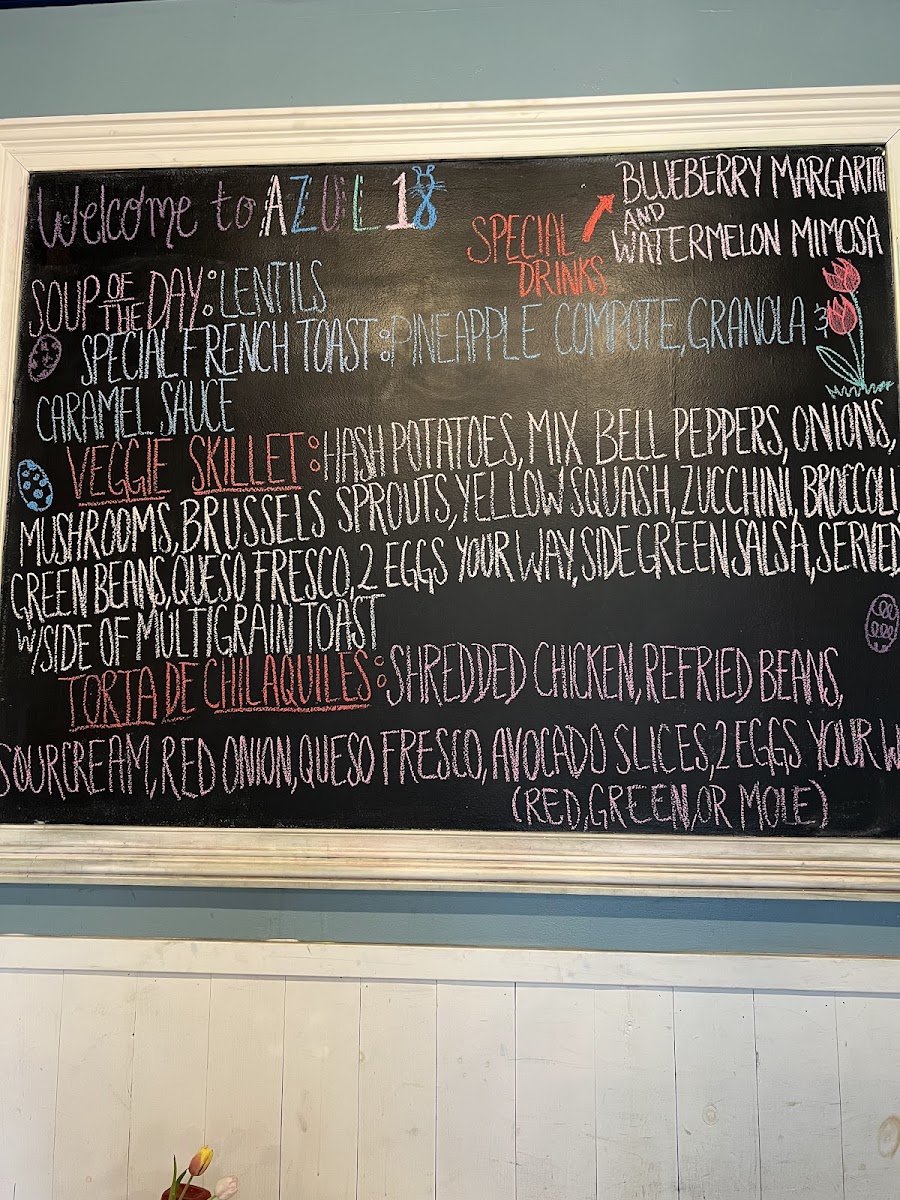 Welcome to AZUL 18
BLUEBERRY MARGARITA
AND
WATERMELON MIMOSA
SPECIAL
DRINKS
SOUP OF THE DAY: LENTILS
SPECIAL FRENCH TOAST: PINEAPPLE COMPOTE, GRANOLA &
CARAMEL SAUCE
VEGGIE SKILLET: HASH POTATOES, MIX BELL PEPPERS, ONIONS,
MUSHROOMS, BRUSSELS SPROUTS, YELLOW SQUASH, ZUCCHINI, BROCCOLI
GREEN BEANS, QUESO FRESCO, 2 EGGS YOUR WAY, SIDE GREEN SALSA, SERVED
W/SIDE OF MULTIGRAIN TOAST
TORTA DE CHILAQUILES: SHREDDED CHICKEN, REFRIED BEANS,
SOUR CREAM, RED ONION, QUESO FRESCO, AVOCADO SLICES, 2 EGGS YOUR
(RED, GREEN, OR MOLE)